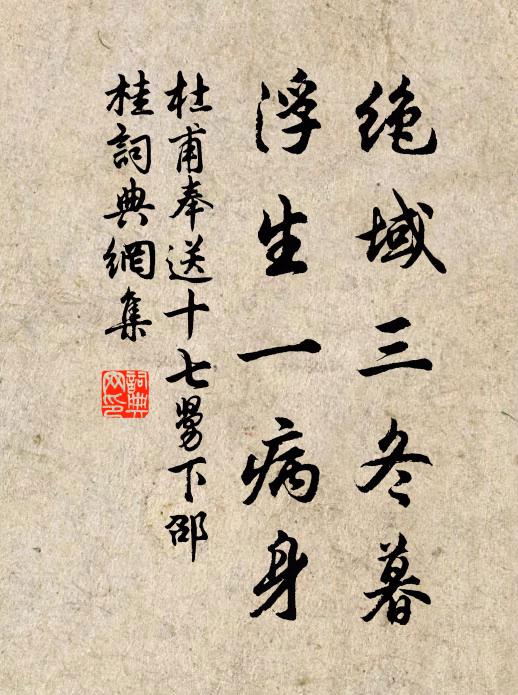 绝域三冬暮
浮生一病身
杜甫奉送十七舅下邵
桂詞典網集
詞典網印